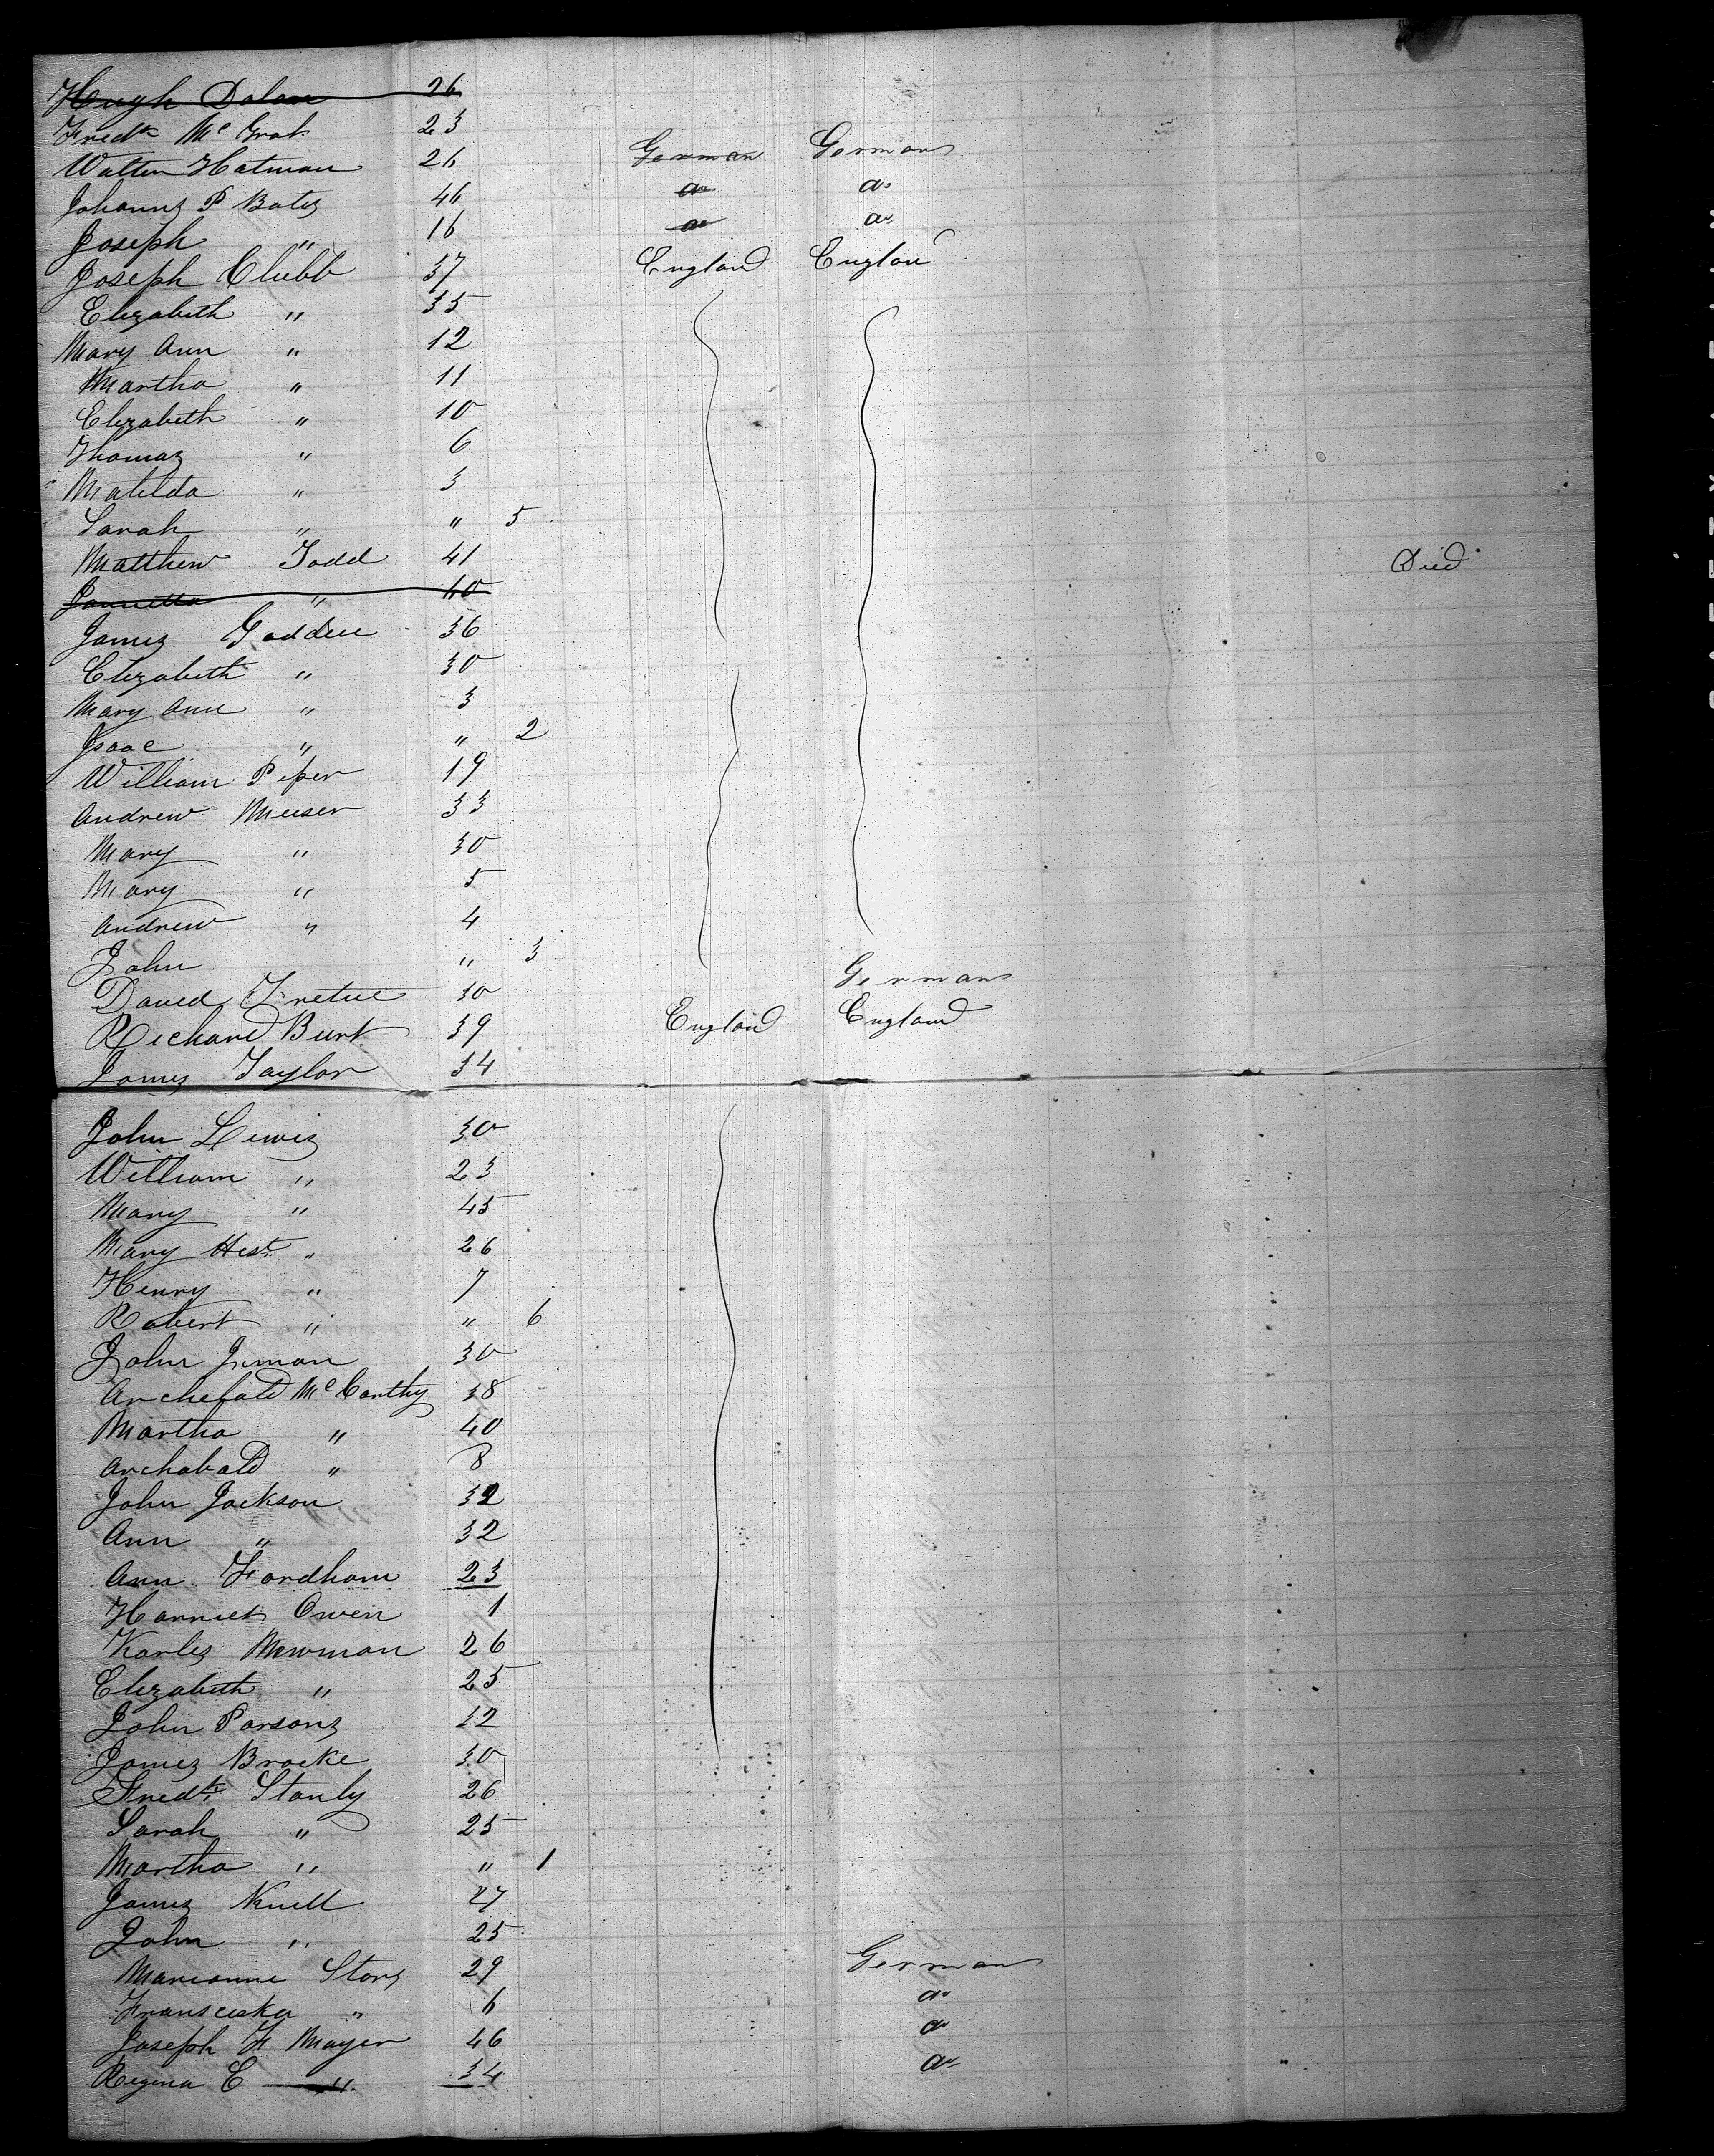 Hugh Dolan 26
Fredk Mc Grah 23
Walter Hatman 26 German German
Johanns P Bates 46 do do
Joseph " 16 do do
Joseph Clubb 37 England England
Elizabeth " 35
Mary Ann " 12
Martha " 11
Elizabeth " 10
Thomas " 6
Matilda " 3
Sarah " " 5
Matthew Todd 41 Died
Jannetta " 40
James Godden 36
Elizabeth " 30
Mary Ann " 3
Isaac " " 2
William Piper 19
Andrew Meuser 33
Mary " 30
Mary " 5
Andrew " 4
John " 3
David 30 German
Richard Burt 39 England England
James Taylor 34
John Lewis 30
William " 23
Mary " 45
Mary Hest. " 26
Henry " 7
Robert " " 6
John Inman 30
Archebald Mc Carthy 38
Martha " 40
Archabald " 8
John Jackson 32
Ann " 32
Ann Fordham 23
Harriet Owen 1
Karles Newman 26
Elizabeth " 25
John Parsons 12
James Brooke 30
Fredk Stanly 26
Sarah " 25
Martha " " 1
James Knell 27
John " 25
Marianne Storz 29 German
Fransciska " 6 do
Joseph F Mayer 46 do
Regina C " 34 do